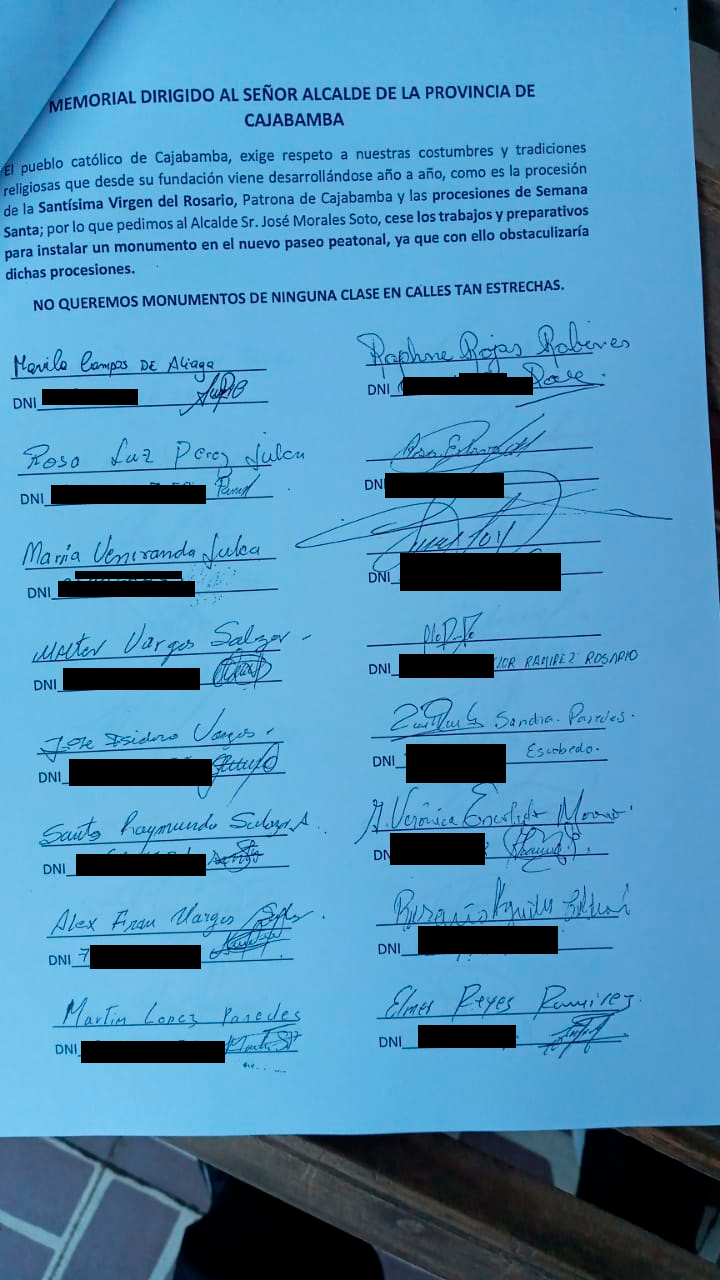 MEMORIAL DIRIGIDO AL SEÑOR ALCALDE DE LA PROVINCIA DE
CAJABAMBA
El pueblo católico de Cajabamba, exige respeto a nuestras costumbres y tradiciones
religiosas que desde su fundación viene desarrollándose año a año, como es la procesión
de la Santísima Virgen del Rosario, Patrona de Cajabamba y las procesiones de Semana
Santa; por lo que pedimos al Alcalde Sr. José Morales Soto, cese los trabajos y preparativos
para instalar un monumento en el nuevo paseo peatonal, ya que con ello obstaculizaría
dichas procesiones.
NO QUEREMOS MONUMENTOS DE NINGUNA CLASE EN CALLES TAN ESTRECHAS.
Campos DE Aliaga
DNI
Rosa Luz Perez Julca
DNI
Maria Veniranda Julca
DNI
Walter Vargas Salzar
DNI
Jose Isidoro Vargas
DNI
Santo Raymundo Salazar A.
DNI
Alex Fran Vargas
DNI 7
Martin Lopez Paredes
DNI
Rojas
DNI
DNI
DNI
DNI RAMIREZ ROSARIO
Sandra Paredes.
DNI Escobedo.
Verónica Moreno
DN
DNI
Elmer Reyes Ramirez.
DNI